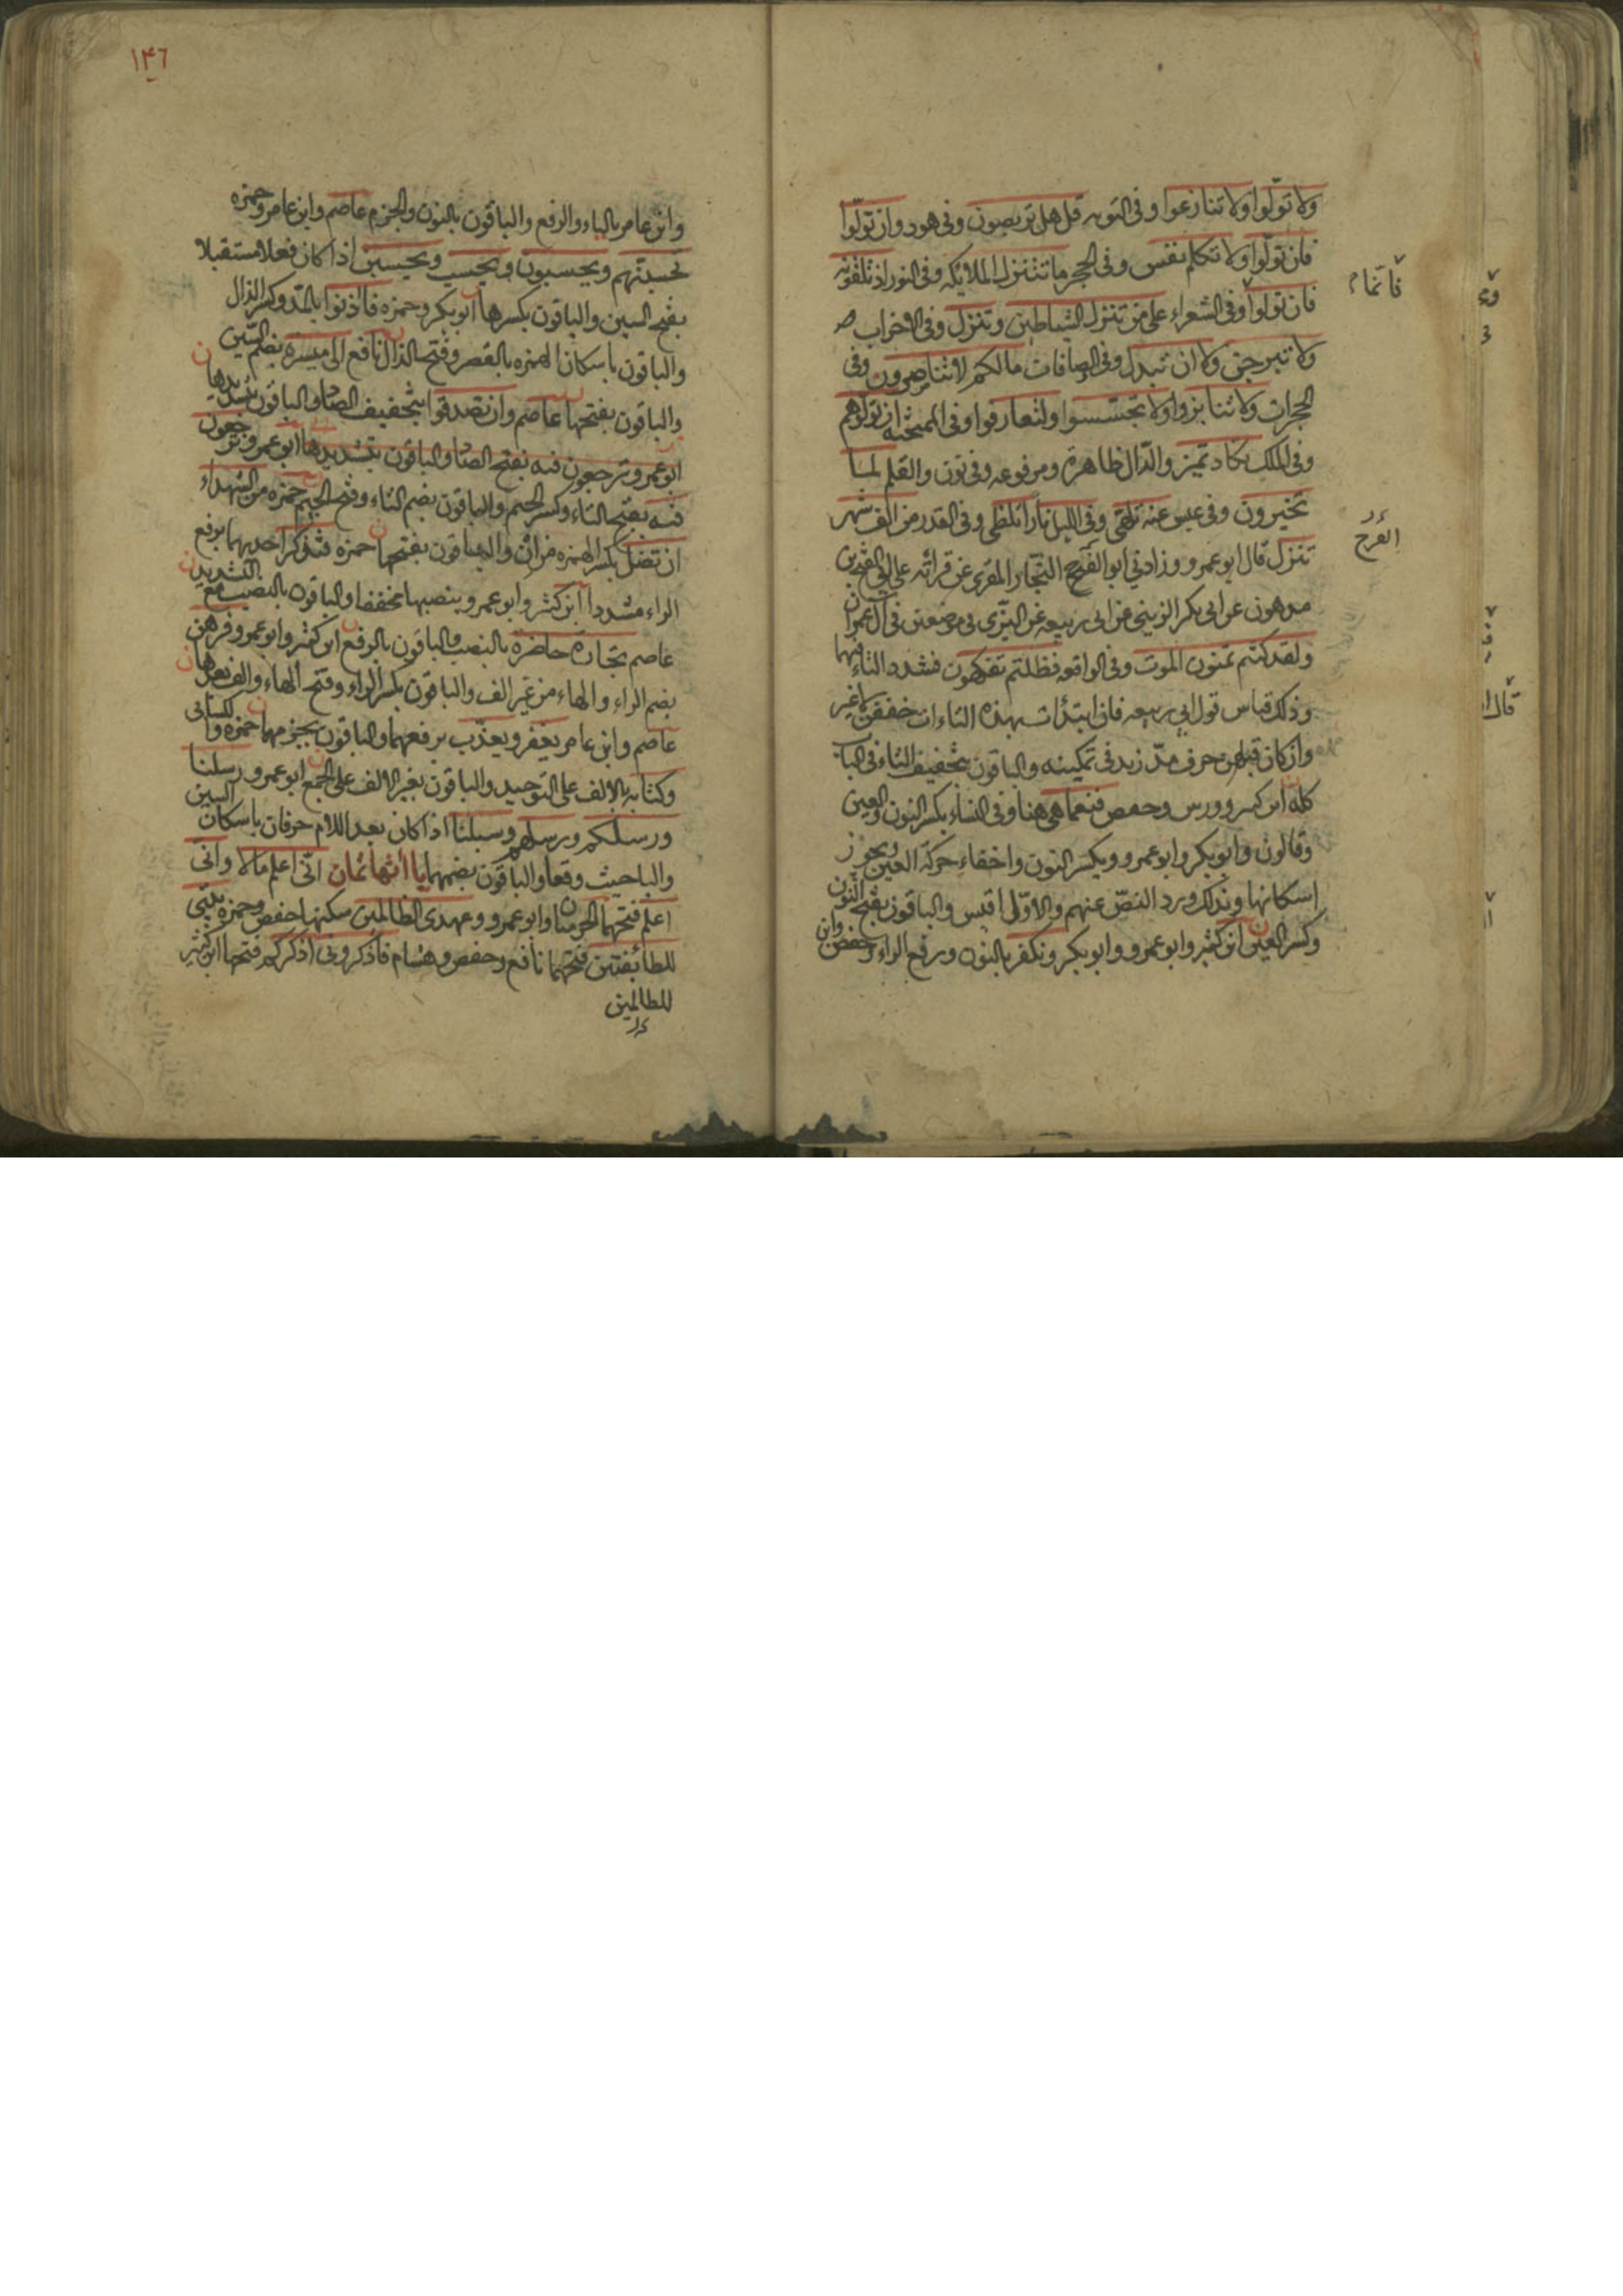 ولا تولّوا ولا تنازعوا وفي التوبه قل هل تربصون وفي هود وان تولّوا
فان تولّوا ولا تكلم نفس وفي الحجر ما تتنزل الملائكه وفي النور اذ تلقونه
فان تولوا وفي الشعراء على من تنزل الشياطين وتنزل وفي الاحزاب
ولا تبرجن ولا ان تبدل وفي الصافات مالكم لا تناصرون وفي
الحجرات ولا تنابزوا ولا تجسّسوا ولتعارفوا وفي الممتحنه ان تولّوهم
وفي الملك تكاد تميز والدّال ظاهرة ومرفوعه وفي نون والقلم لما
تخيرون وفي عبس عنه تلهّى وفي الليل نارا تلظى وفي القدر من الف شهر
تنزل قال ابو عمرو وزادني ابو الفرج النجّار المقرى عن قرائته على ابي الفتح بن
بدهون عن ابي بكر الزينبي عن ابي ربيعه عن البزّى في موضعين في آل عمران
ولقد كنتم تمنون الموت وفي الواقعه فظلتم تفكهون فشدد التاء فيهما
وذلك قياس قول ابي ربيعه فان ابتدأت بهذه التاءات خففن لا غير
وان كان قبلهن حرف مدّ زيد في تمكينه والباقون بتخفيف التاء في الباب
كله ابن كثير وورش وحفص فنعما هي هنا وفي النساء بكسر النون والعين
وقالون وابو بكر وابو عمرو ويكسر النون واخفاء حركة العين ويجوز
اسكانها وبذلك ورد النصّ عنهم والاوّل اقيس والباقون بفتح النون
وكسر العين ابن كثير وابو عمرو وابو بكر ونكفر بالنون ورفع الراء وحفص وابن
فانّما
الفرج
قال
١٤٦
وابن عامر بالياء والرفع والباقون بالنون والجزم عاصم وابن عامر وحمزه
تحسبنّهم ويحسبون ويحسب ويحسبن اذا كان فعلا مستقبلا
بفتح السين والباقون بكسرها ابو بكر وحمزه فآذنوا بالمدّ وكسر الذال
والباقون باسكان الهمزه بالقصر وفتح الذال نافع الى ميسرة بضم السّين
والباقون بفتحها عاصم وان تصدقوا بتخفيف الصاد والباقون بتشديدها
ابو عمرو وترجعون فيه بفتح الصاد والباقون بتشديدها ابو عمرو ترجعون
فيه بفتح التاء وكسر الجيم والباقون بضم التاء وفتح الجيم حمزه من الشهداء
ان تضل بكسر الهمزه من ان والباقون بفتحها حمزه فتذكر احديهما برفع
الراء مشددا ابن كثير وابو عمرو ينصبها مخففا والباقون بالنصب مع التشديد
عاصم تجارة حاضرة بالنصب والباقون بالرفع ابن كثير وابو عمرو فرهن
بضم الراء والهاء من غير الف والباقون بكسر الراء وفتح الهاء والف بعدها
عاصم وابن عامر يغفر ويعذب برفعهما والباقون بجزمهما حمزه والكسائي
وكتابه بالالف على التوحيد والباقون بغير الالف على الجمع ابو عمرو رسلنا
ورسلكم ورسلهم وسبلنا اذا كان بعد اللام حرفان باسكان السين
والبا حيث وقعا والباقون بضمهما ياآتها ثمان انّى اعلم ما لا وانى
اعلم فتحهما الحرميان وابو عمرو وعهدى الظالمين سكنها حفص وحمزه بيتي
للطائفين فتحهما نافع وحفص وهشام فاذكروني اذكركم فتحها ابن كثير
للظالمين